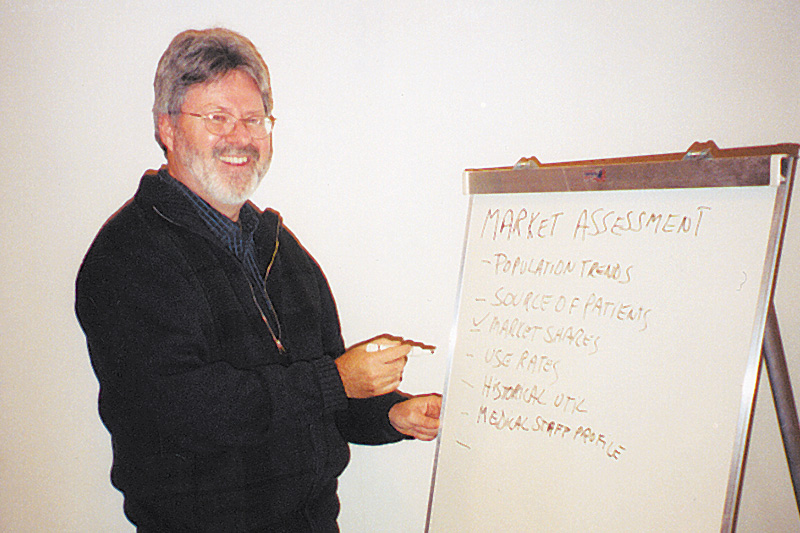 MARKET ASSESSMENT
- POPULATION TRENDS
- SOURCE OF PATIENTS
✓ MARKET SHARES
- USE RATES
- HISTORICAL UTIL
- MEDICAL STAFF PROFILE
-